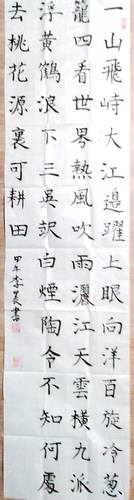 一山飛峙大江邊躍上眼向洋百旋冷葱
籠四看世界熱風吹雨灑江天雲橫九派
浮黃鶴浪下三吳訳白煙陶令不知何處
去桃花源裏可耕田
甲午李書